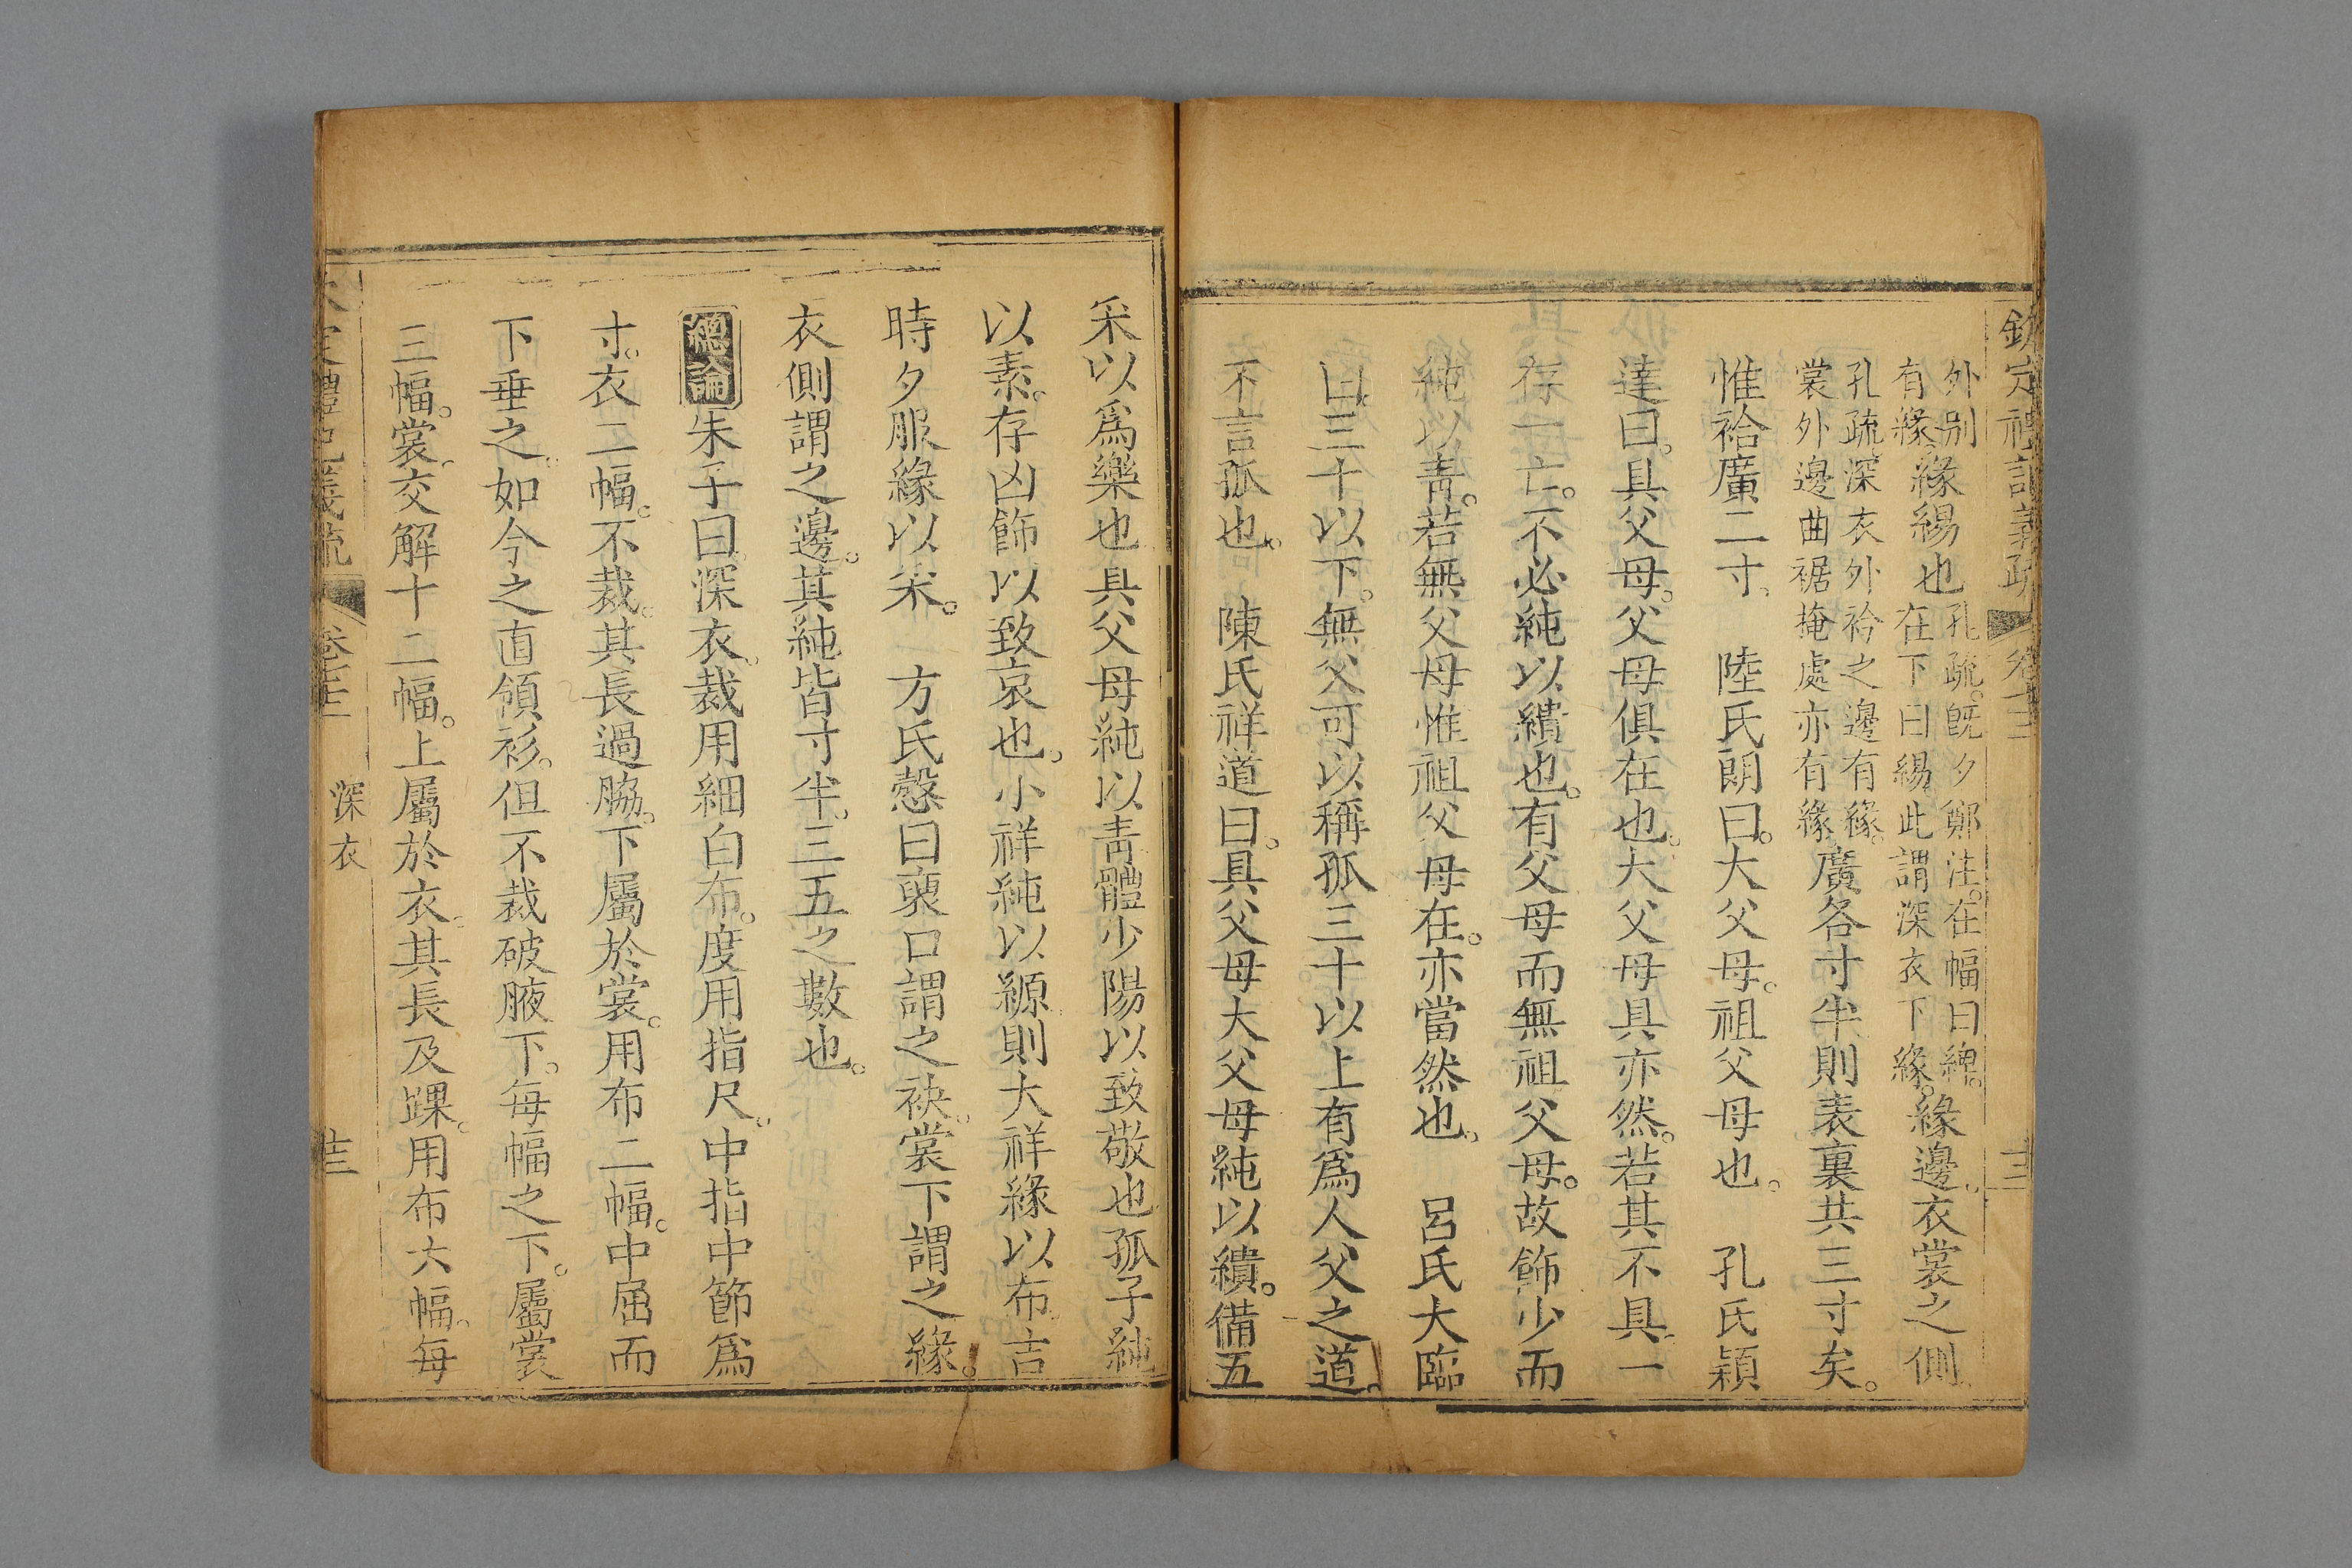 欽定禮記義疏 卷 十三
外别有緣緣緆也孔疏。旣夕鄭注。在幅曰綼。在下曰緆此謂深衣下緣。緣邊。衣裳之側
孔疏深衣外衿之邊有緣。裳外邊曲裾掩處亦有緣廣各寸半則表裏共三寸矣。
惟袷廣二寸。　陸氏朗曰。大父母。祖父母也。　孔氏穎
達曰。具父母。父母俱在也。大父母具亦然。若其不具一
存一亡。不必純以繢也。有父母而無祖父母。故飾少而
純以靑。若無父母惟祖父母在。亦當然也。　呂氏大臨
曰三十以下。無父可以稱孤三十以上有爲人父之道。
不言孤也。　陳氏祥道曰。具父母大父母純以繢。備五
采以爲樂也具父母純以靑體少陽以致敬也孤子純
以素。存凶飾以致哀也。小祥純以縓則大祥緣以布吉
時夕服緣以采。　方氏慤曰褎口謂之袂。裳下謂之緣。
衣側謂之邊。其純皆寸半。三五之數也。
總論朱子曰深衣。裁用細白布。度用指尺。中指中節爲
寸。衣二幅。不裁。其長過脇。下屬於裳。用布二幅。中屈而
下垂之。如今之直領衫。但不裁破腋下。每幅之下。屬裳
三幅。裳。交解十二幅。上屬於衣。其長及踝。用布六幅。每
定禮記義疏 卷 深衣